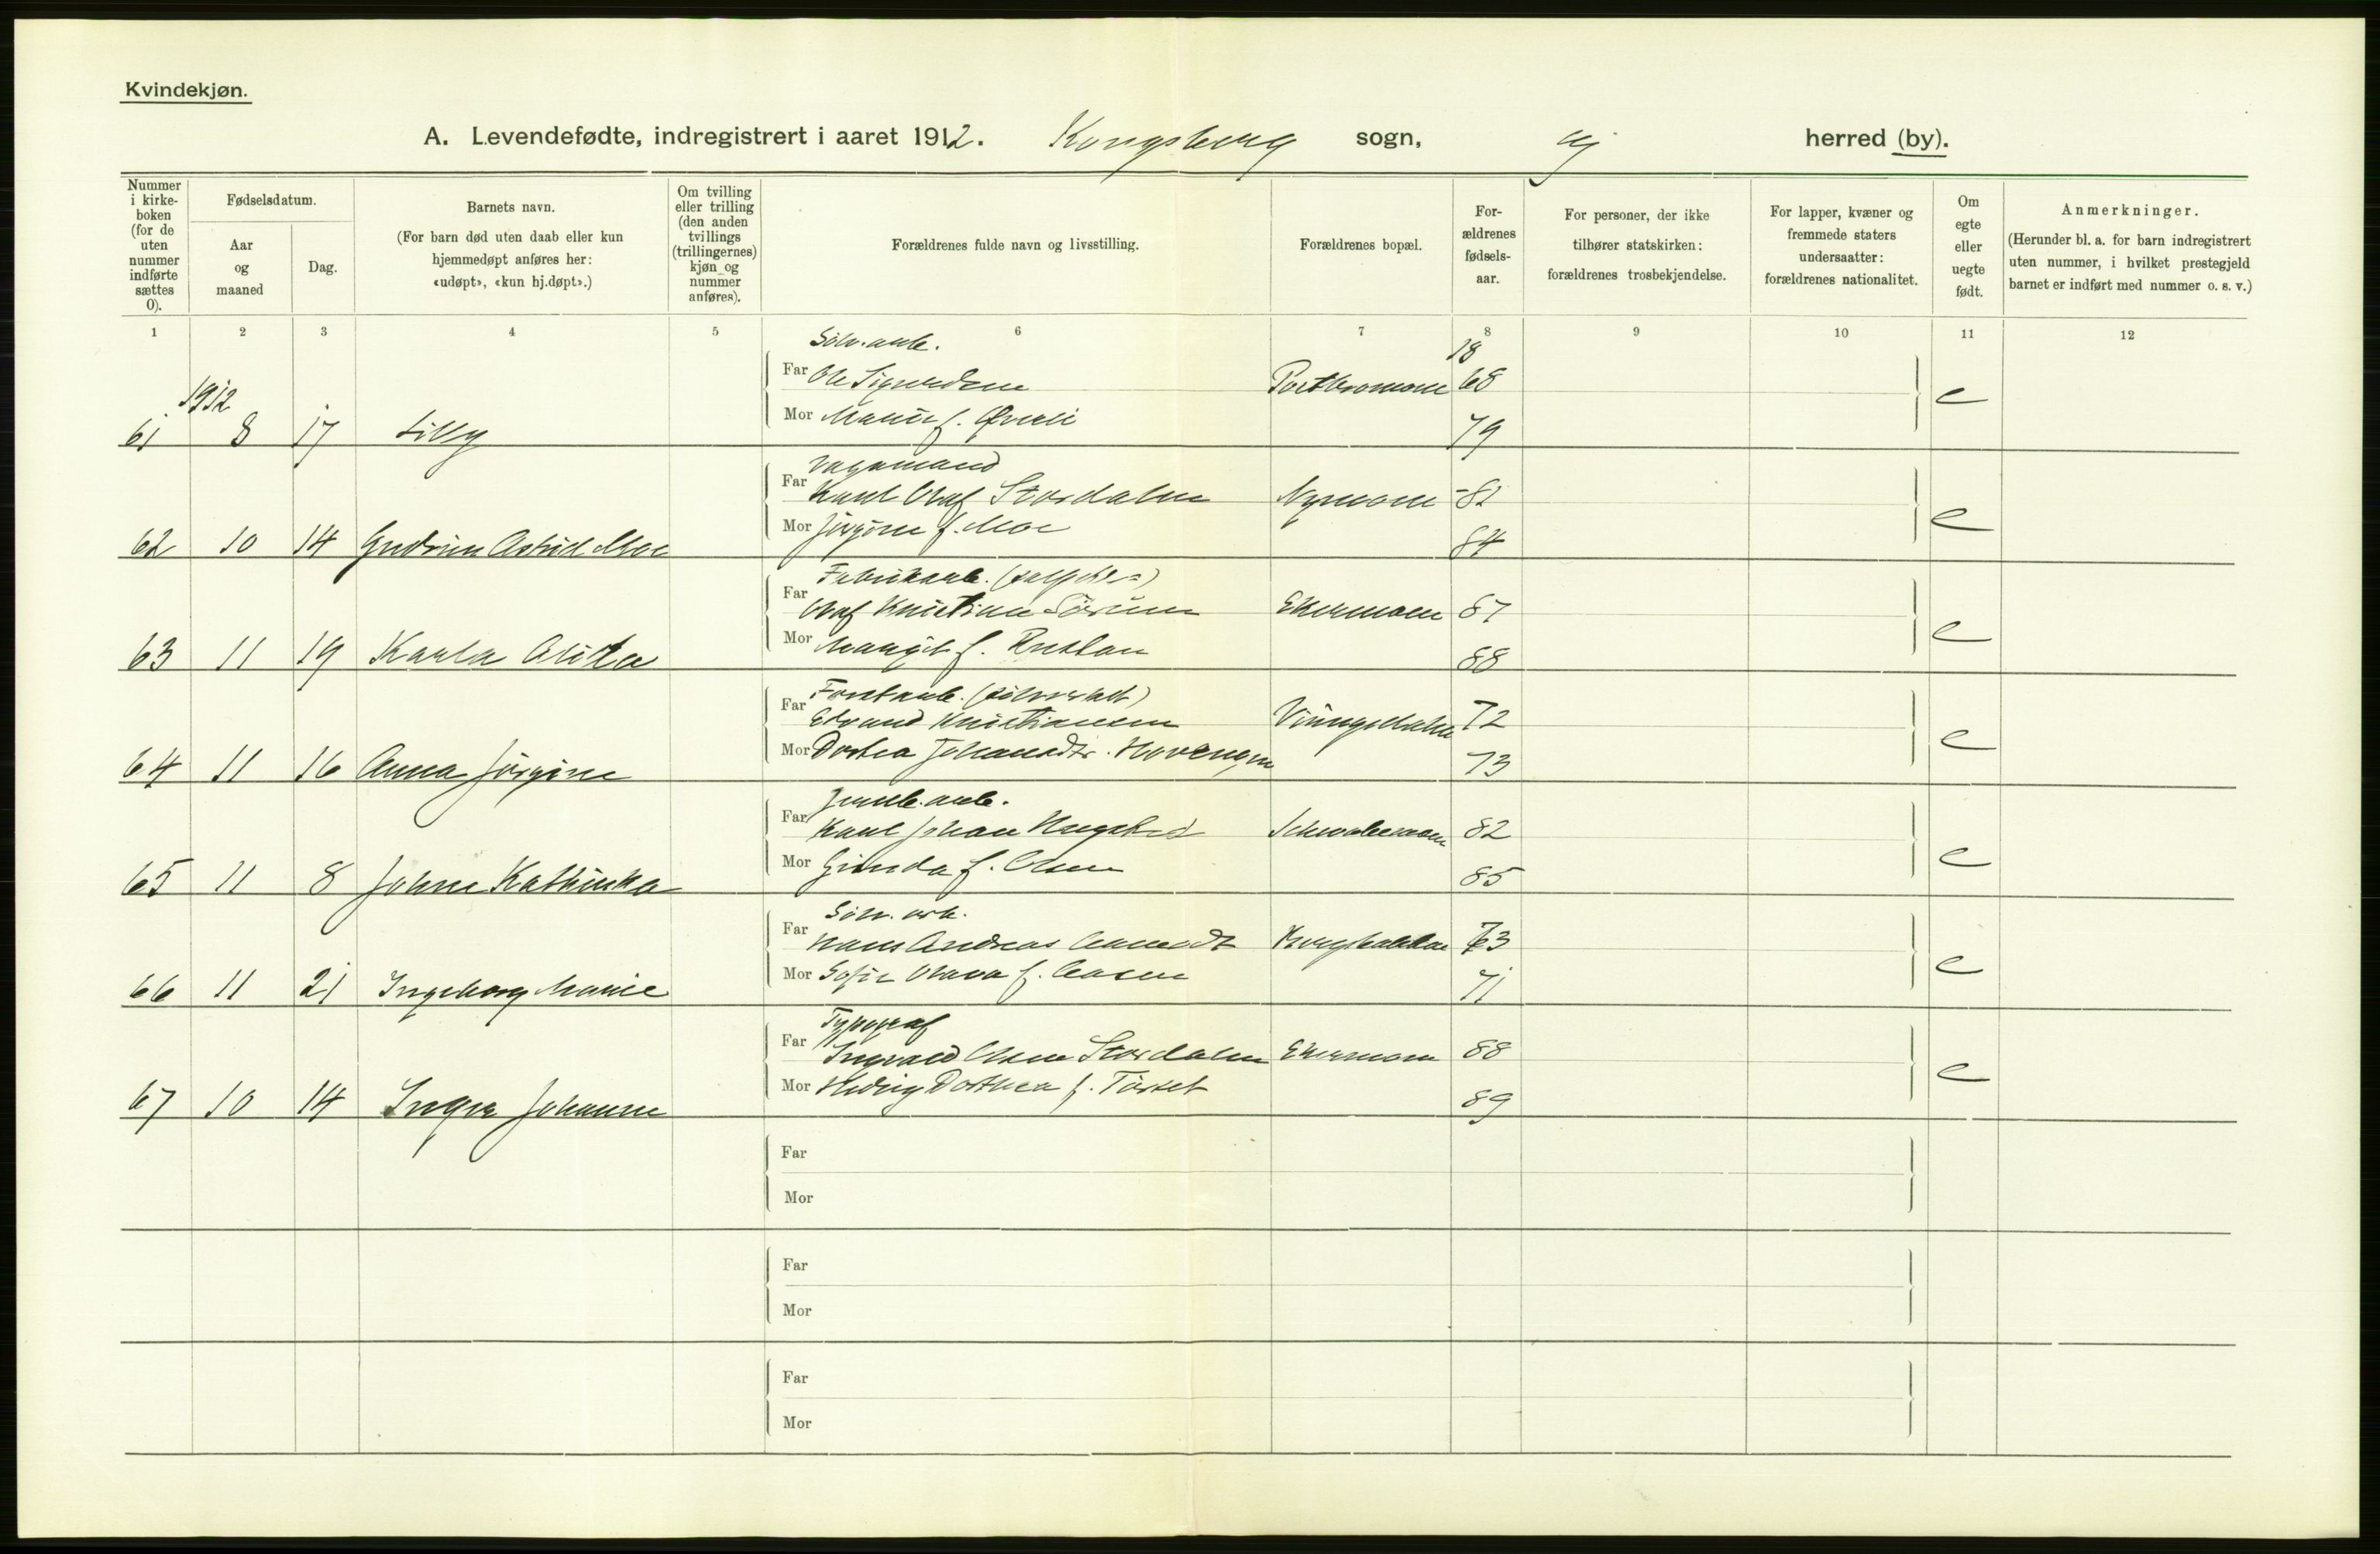 Kvindekjøn.
A. Levendefødte, indregistrert i aaret 1912. Kongsberg sogn, herred (by).
Nummer i kirke-boken (for de uten nummer indførte sættes 0).
Fødselsdatum.
Aar og maaned
Dag.
Barnets navn.
(For barn død uten daab eller kun hjemmedøpt anføres her: «udøpt», «kun hj.døpt».)
Om tvilling eller trilling (den anden tvillings (trillingernes) kjøn og nummer anføres).
Forældrenes fulde navn og livsstilling.
Forældrenes bopæl.
For-ældrenes fødsels-aar.
For personer, der ikke tilhører statskirken: forældrenes trosbekjendelse.
For lapper, kvæner og fremmede staters undersaatter: forældrenes nationalitet.
Om egte eller uegte født.
Anmerkninger.
(Herunder bl. a. for barn indregistrert uten nummer, i hvilket prestegjeld barnet er indført med nummer o. s. v.)
1 2 3 4 5 6 7 8 9 10 11 12
Sølv.arb. 18
1912 Far Ole Sigurdsen 68 e
61 8 17 Lilly Mor Marie f. Øvreli 79
Far Karl Olaf Stordalen Nymoen 82 e
62 10 14 Gudrun Astrid Moe Mor Jørgine f. Moe 84
Fabrikarb.
Far Olaf Kristian Sørum Ekermoen 87 e
63 11 19 Karla Alida Mor Margit f. Rustan 88
Forstarb.
Far Edvand Kristiansen Viningsdalen 72 e
64 11 16 Anna Jørgine Mor Dorthea Johansdtr. Hovengen 73
Jernb.arb.
Far Karl Johan Schwabemoen 82 e
65 11 8 Kathinka Mor f. Olsen 85
Sølv. arb.
Far Hans Andreas 73 e
66 11 21 Ingeborg Marie Mor Sofie Olava f. Aasen 71
Typograf
Far Ingvald Olsen Stordalen Ekermoen 88 e
67 10 14 Inga Johanne Mor Hedvig Dorthea f. Torset 89
Far
Mor
Far
Mor
Far
Mor